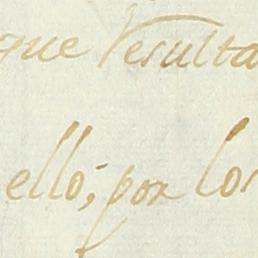 que resulta
ello; por lo